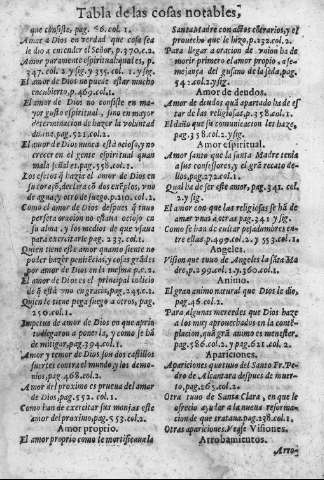 Tabla de las cosas notables,
que consiste, pag. 56. col. 1.
Amor a Dios en verdad que cosa sea
le dio a entender el Señor, p. 470. c. 2.
Amor puramente espiritual qual es, p.
347. col. 2. y sig. y 355. col. 1. y sig.
El amor de Dios no puede estar mucho
encubierto, p. 469. col. 1.
El amor de Dios no consiste en ma-
yor gusto espiritual, sino en mayor
determinacion de hazer la voluntad
diuina, pag. 521. col. 2.
El amor de Dios nunca està ocioso, y no
crecer en el gente espiritual quan
mala señal es, pag. 558. col. 2.
Los efectos q̃ hazia el amor de Dios en
su coraçõ, declara cõ dos exẽplos, vno
de agua, y otro de fuego, p. 210. col. 1.
Como el amor de Dios despues q̃ tuuo
perfeta oracion no estaua ocioso en
su alma, y los medios de que vsaua
para exercitarle pag. 237. col. 1.
Quien tiene este amor quanto siente no
poder hazer penitẽcias, y cosas grãdes
por amor de Dios en la mesma p. c. 2.
El amor de Dios es el principal indicio
de q̃ està vno en gracia, pag. 245. c. 2.
Quien le tiene pega fuego a otros, pag.
250. col. 1.
Impetus de amor de Dios en que aprie-
to llegaron a ponerla, y como se hã
de mitigar, pag. 394. col. 1.
Amor y temor de Dios son dos castillos
fuertes contra el mundo y los demo-
nios, pag. 468. col. 2.
Amor del proximo es prueua del amor
de Dios, pag. 552. col. 1.
Como han de exercitar sus monjas este
amor del proximo, pag. 553. col. 2.
Amor proprio.
El amor proprio como le mortificaua la
Santa Madre con assos clerarios, y el
prouecho que le hizo, p. 232. col. 2.
Para llegar a oracion de vnion ha de
morir primero el amor propio, a se-
mejança del gusano de la seda, pag.
542. col. 2. y sig.
Amor de deudos.
Amor de deudos què apartado ha de es-
tar de las religiosas, p. 358. col. 1.
El daño que su comunicacion les haze,
pag. 358. col. 2. y sig.
Amor espiritual.
Amor santo que la santa Madre tenia
a sus confessores, y el grã recato de-
llos, pag. 272. col. 1.
Qual ha de ser este amor, pag. 341. col.
2. y sig.
El amor con que las religiosas se hã de
amar vnas a otras pag. 341. y sig.
Como se han de euitar pesadumbres en-
tre ellas, p. 409. col. 2. y 553. col. 1.
Angeles.
Vision que tuuo de Angeles la sãta Ma-
dre, p. 299. col. 1. y. 360. col. 1.
Animo.
El gran animo natural que Dios le dio,
pag. 46. col. 2.
Para algunas mercedes que Dios haze
a los muy aprouechados en la contẽ-
placion, quã grã animo es menester,
pag. 586. col. 2. y pag. 621. col. 2.
Apariciones.
Apariciones que tuuo del Santo Fr. Pe-
dro de Alcantara despues de muer-
to, pag. 265. col. 2.
Otra tuuo de Santa Clara, en que le
ofrecio ayudar a la nueua reforma-
cion de que trataua, pag. 238. col. 1.
Otras apariciones. Vease Visiones.
Arrobamientos.
Arro-